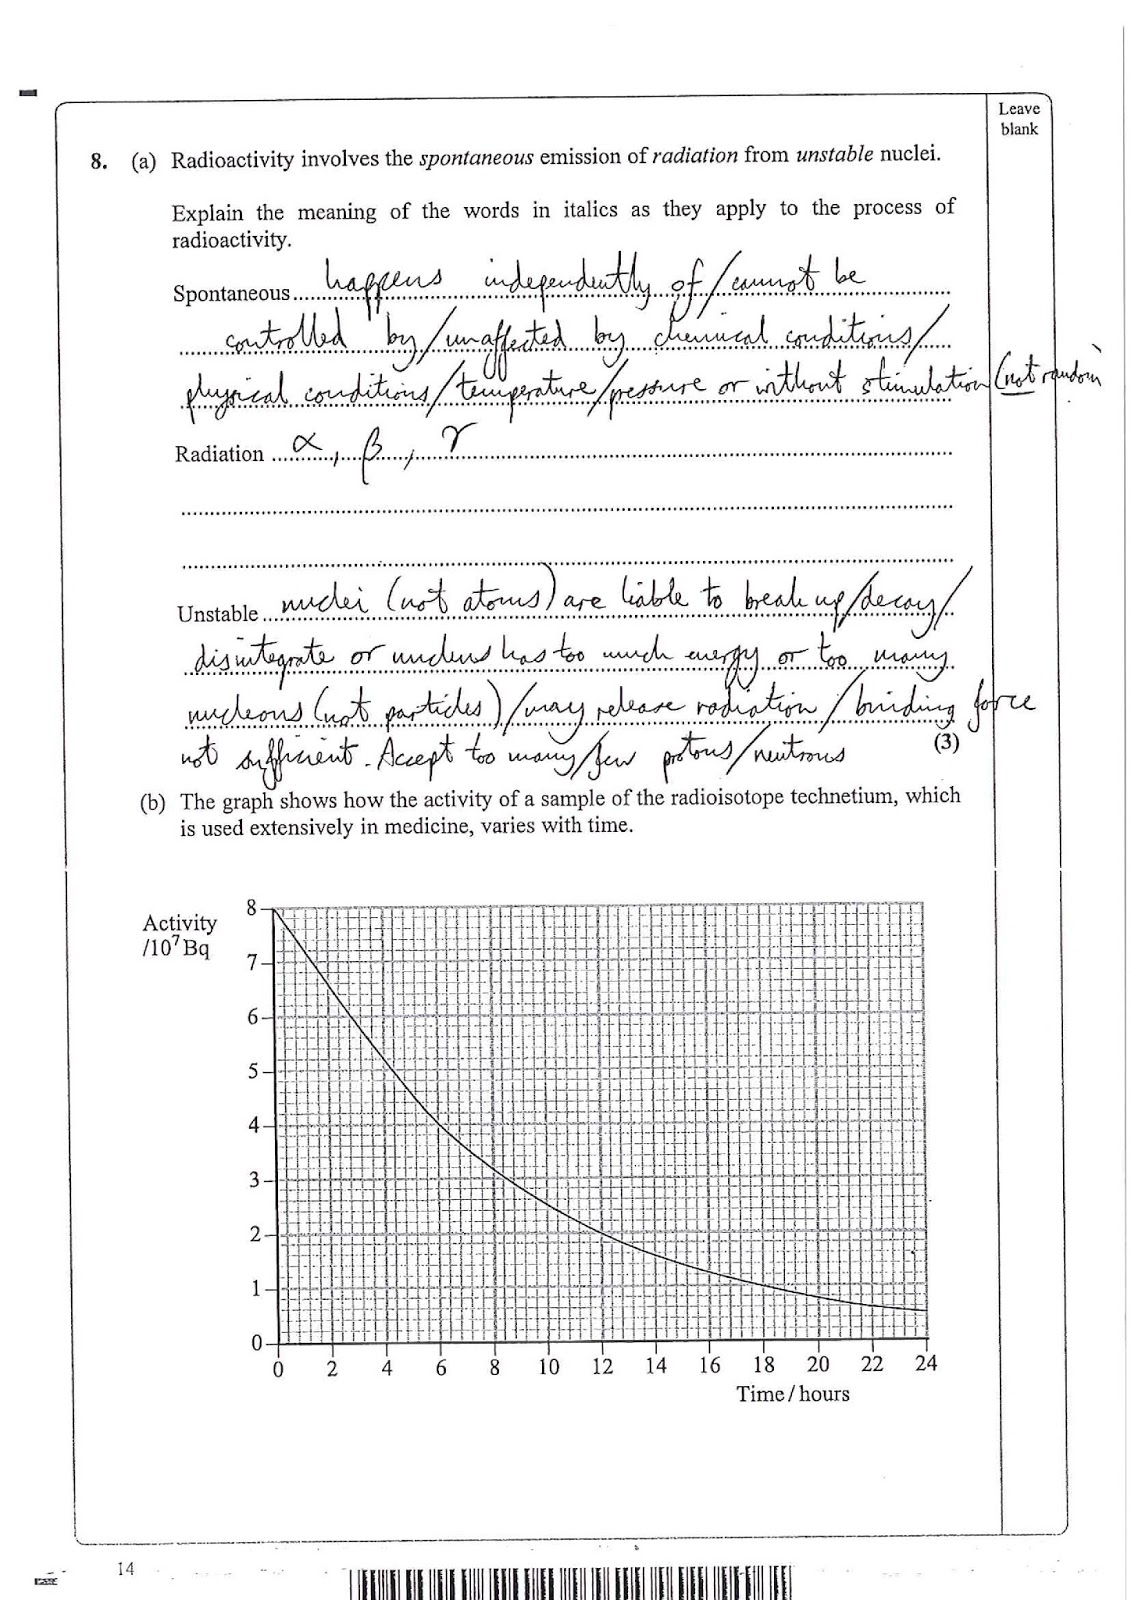 Leave
blank
8. (a) Radioactivity involves the spontaneous emission of radiation from unstable nuclei.
Explain the meaning of the words in italics as they apply to the process of
radioactivity.
Spontaneous happens independently of / cannot be
controlled by / unaffected by chemical conditions /
physical conditions / temperature / pressure or without stimulation (not random)
Radiation α, β, γ
Unstable nuclei (not atoms) are liable to break up / decay /
disintegrate or nucleus has too much energy or too many
nucleons (not particles) / may release radiation / binding force
not sufficient. Accept too many / few protons / neutrons
(3)
(b) The graph shows how the activity of a sample of the radioisotope technetium, which
is used extensively in medicine, varies with time.
Activity
/10⁷ Bq
8
7
6
5
4
3
2
1
0
0 2 4 6 8 10 12 14 16 18 20 22 24
Time / hours
14